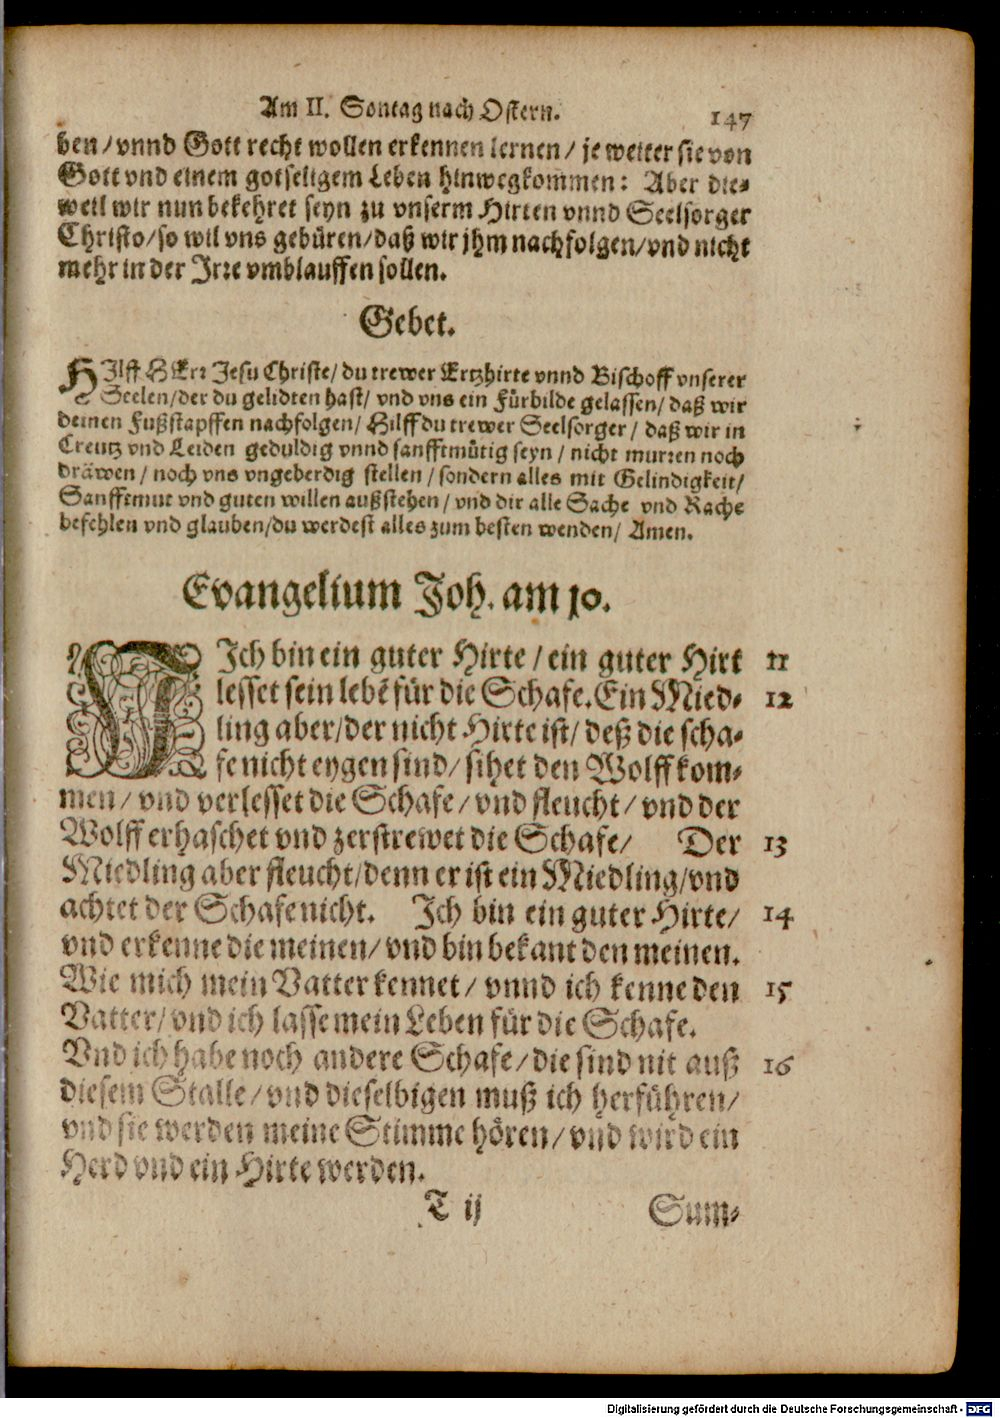 Am II. Sontag nach Ostern. 147
ben/ vnnd Gott recht wollen erkennen lernen/ je weiter sie von
Gott vnd einem gotseligem Leben hinwegkommen: Aber die-
weil wir nun bekehret seyn zu vnserm Hirten vnnd Seelsorger
Christo/ so wil vns gebüren/ daß wir jhm nachfolgen/ vnd nicht
mehr in der Irre vmblauffen sollen.
Gebet.
HIlff HErr Jesu Christe/ du trewer Ertzhirte vnnd Bischoff vnserer
Seelen/ der du gelidten hast/ vnd vns ein Fürbilde gelassen/ daß wir
deinen Fußstapffen nachfolgen/ Hilff du trewer Seelsorger/ daß wir in
Creutz vnd Leiden geduldig vnnd sanfftmütig seyn/ nicht murren noch
dräwen/ noch vns vngeberdig stellen/ sondern alles mit Gelindigkeit/
Sanfftmut vnd guten willen außstehen/ vnd dir alle Sache vnd Rache
befehlen vnd glauben/ du werdest alles zum besten wenden/ Amen.
Evangelium Joh. am 10.
ICh bin ein guter Hirte/ ein guter Hirt 11
lesset sein lebē für die Schafe. Ein Mied- 12
ling aber/ der nicht Hirte ist/ deß die scha-
fe nicht eygen sind/ sihet den Wolff kom-
men/ vnd verlesset die Schafe/ vnd fleucht/ vnd der
Wolff erhaschet vnd zerstrewet die Schafe/ Der 13
Miedling aber fleucht/ denn er ist ein Miedling/ vnd
achtet der Schafe nicht. Ich bin ein guter Hirte/ 14
vnd erkenne die meinen/ vnd bin bekant den meinen.
Wie mich mein Vatter kennet/ vnnd ich kenne den 15
Vatter/ vnd ich lasse mein Leben für die Schafe.
Vnd ich habe noch andere Schafe/ die sind nit auß 16
diesem Stalle/ vnd dieselbigen muß ich herführen/
vnd sie werden meine Stimme hören/ vnd wird ein
Herd vnd ein Hirte werden.
T ij Sum-
Digitalisierung gefördert durch die Deutsche Forschungsgemeinschaft - DFG